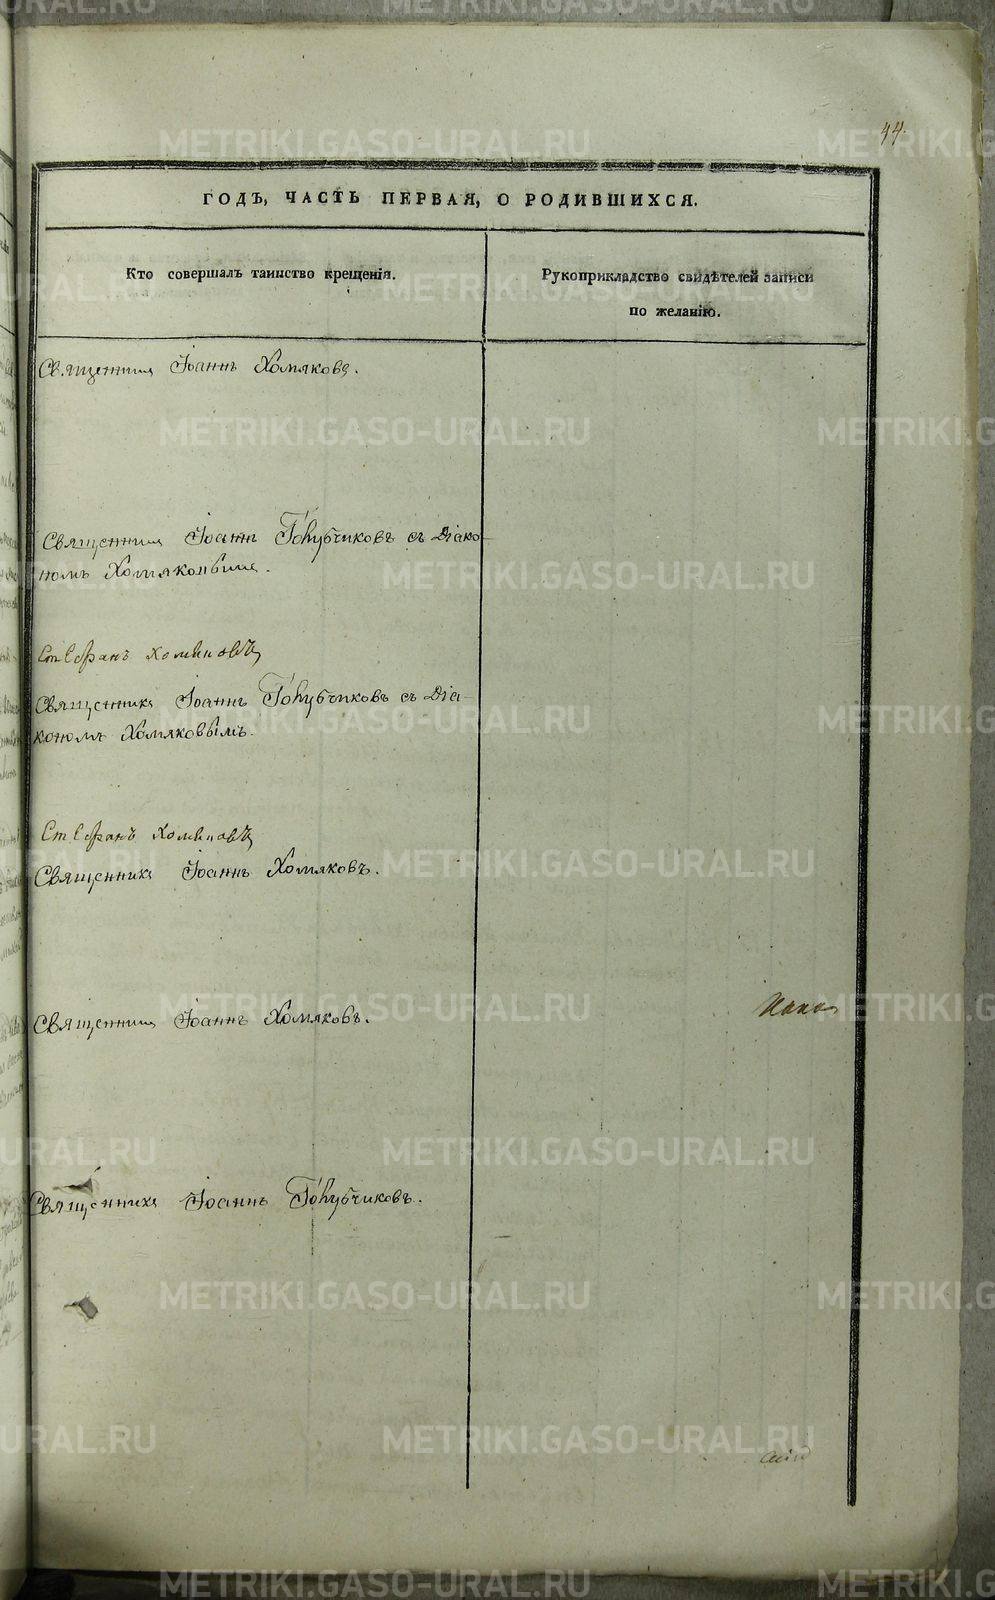 44.
ГОДЪ, ЧАСТЬ ПЕРВАЯ, О РОДИВШИХСЯ.
Кто совершалъ таинство крещенія.
Рукоприкладство свидѣтелей записи
по желанію.
Священникъ Іоаннъ Хомяковъ.
Священникъ Іоаннъ Голубчиковъ съ Діако-
номъ Хомяковымъ.
Стефанъ Хомяковъ
Священникъ Іоаннъ Голубчиковъ съ Діа-
кономъ Хомяковымъ.
Стефанъ Хомяковъ
Священникъ Іоаннъ Хомяковъ.
Священникъ Іоаннъ Хомяковъ.
Священникъ Іоаннъ Голубчиковъ.
METRIKI.GASO-URAL.RU